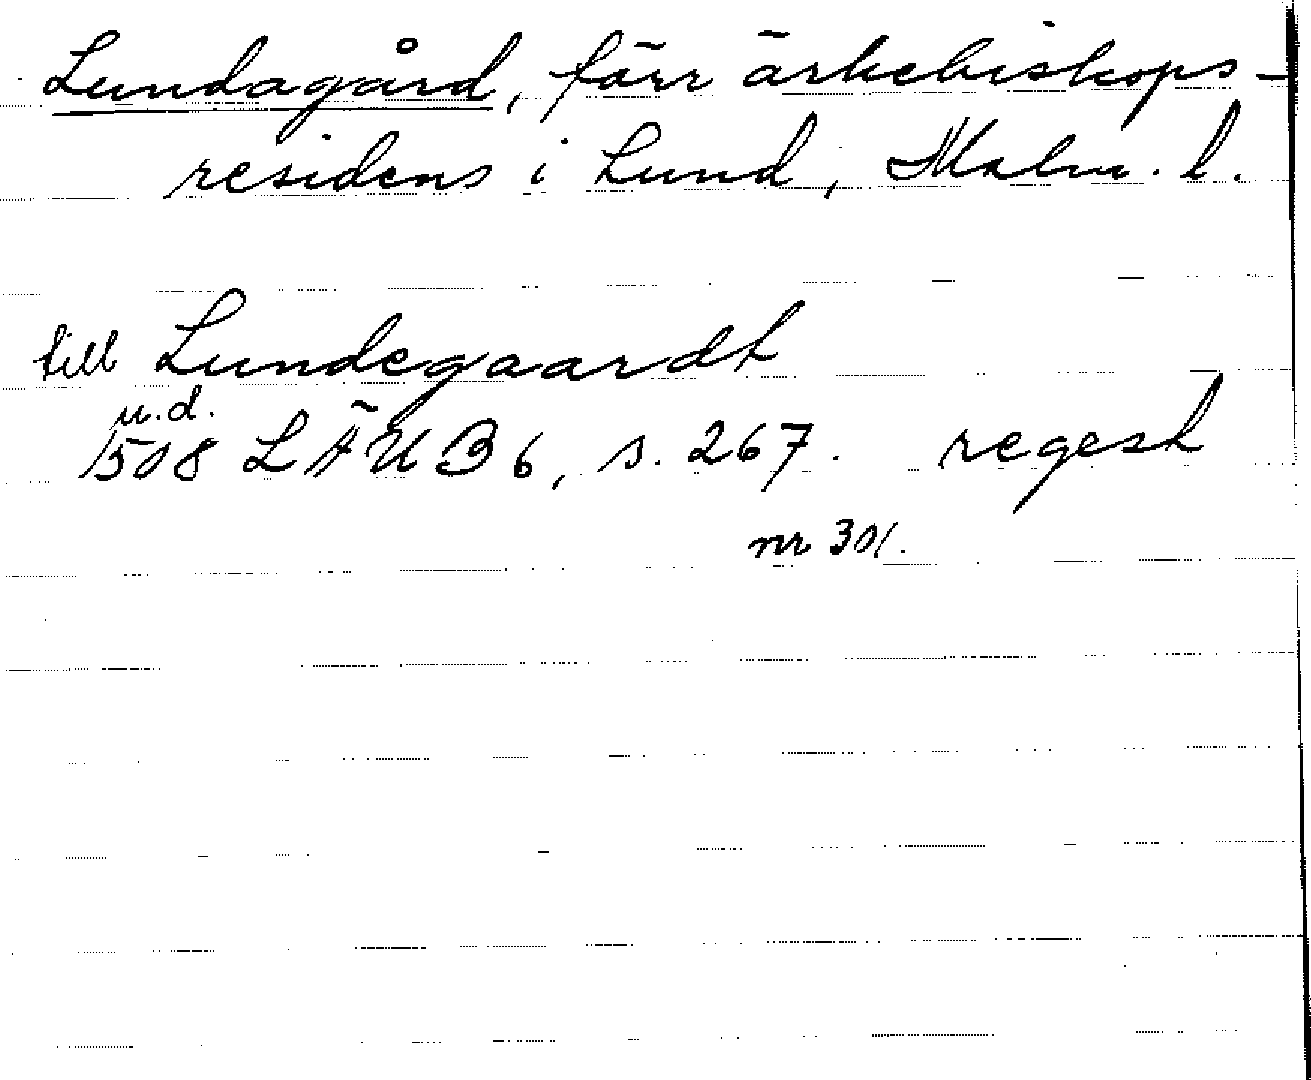 Lundagård, förr ärkebiskops-
residens i Lund, Malm. l.
till Lundegaardt
u.d.
1508 LÄUB 6, s. 267. regest
nr 301.